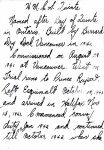 W.M.C.S Quinte
Named after Bay of Quinte
in Ontario. Built by Burrard
Dry Dock Vancouver in 1941.
Commissioned on August
1941 at Vancouver. Went
Trial runs to Prince Rupert
Left Esquimalt October
and arrived in Halifax Nov
1941. Commenced convoy
duty 1942 and continued
till October 1942 when she